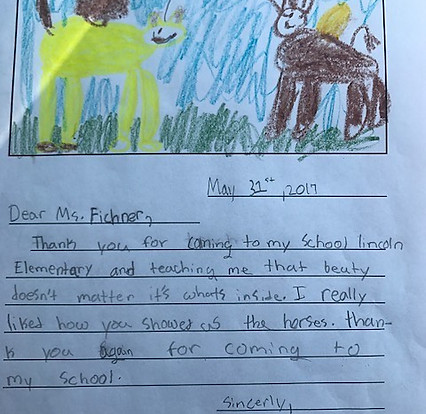 May 31st, 2017
Dear Ms. Fichner,
Thank you for coming to my school lincoln
Elementary and teaching me that beuty
doesn't matter it's whats inside. I really
liked how you showed us the horses. than-
k you again for coming to
my school.
Sincerly,